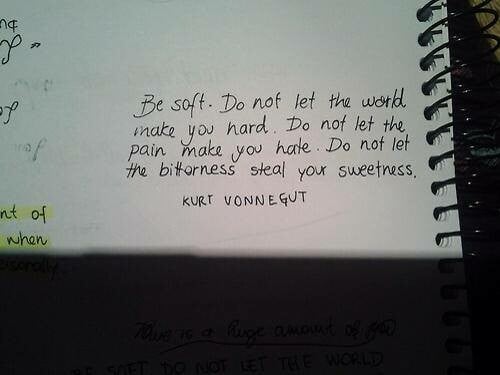 Be soft. Do not let the world
make you hard. Do not let the
pain make you hate. Do not let
the bitterness steal your sweetness.
KURT VONNEGUT
nt of
when
is a huge amount of
BE SOFT DO NOT LET THE WORLD